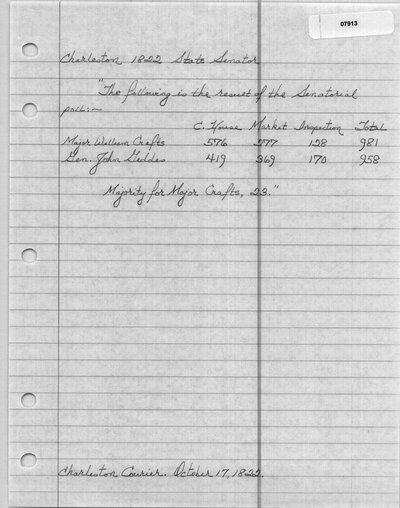 07913
Charleston 1822 State Senator
"The following is the result of the Senatorial
poll:~
C. House Market Inspection Total
Major William Crafts 576 277 128 981
Gen. John Geddes 419 369 170 958
Majority for Major Crafts, 23."
Charleston Courier. October 17, 1822.